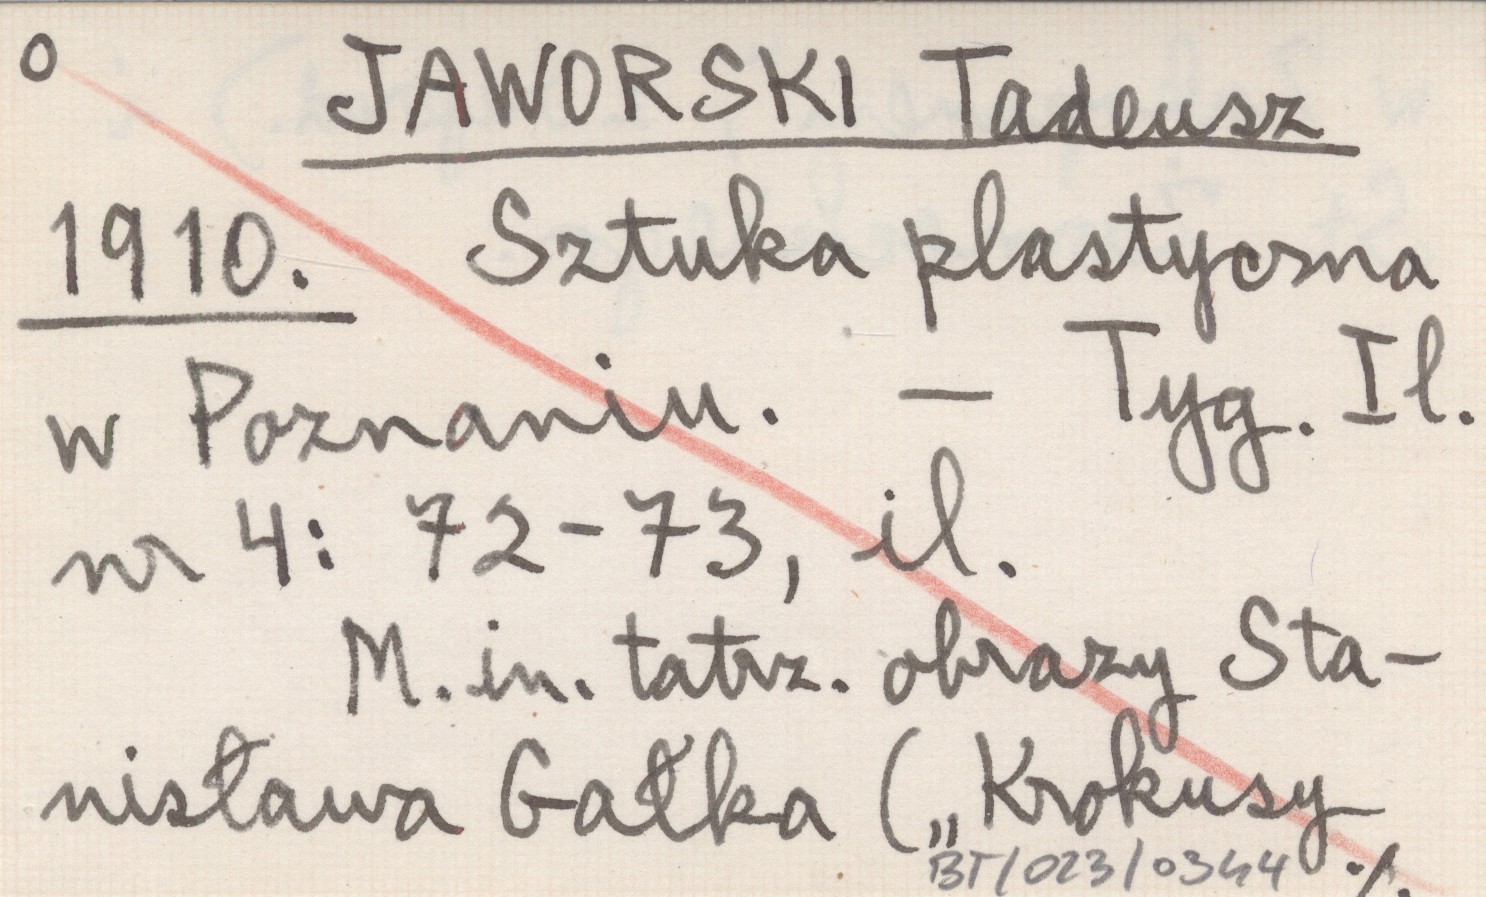 o JAWORSKI Tadeusz
1910. Sztuka plastyczna
w Poznaniu. — Tyg. Il.
nr 4: 72-73, il.
M. in. tatrz. obrazy Sta-
nisława Gałka („Krokusy
BT/023/0344 ./.